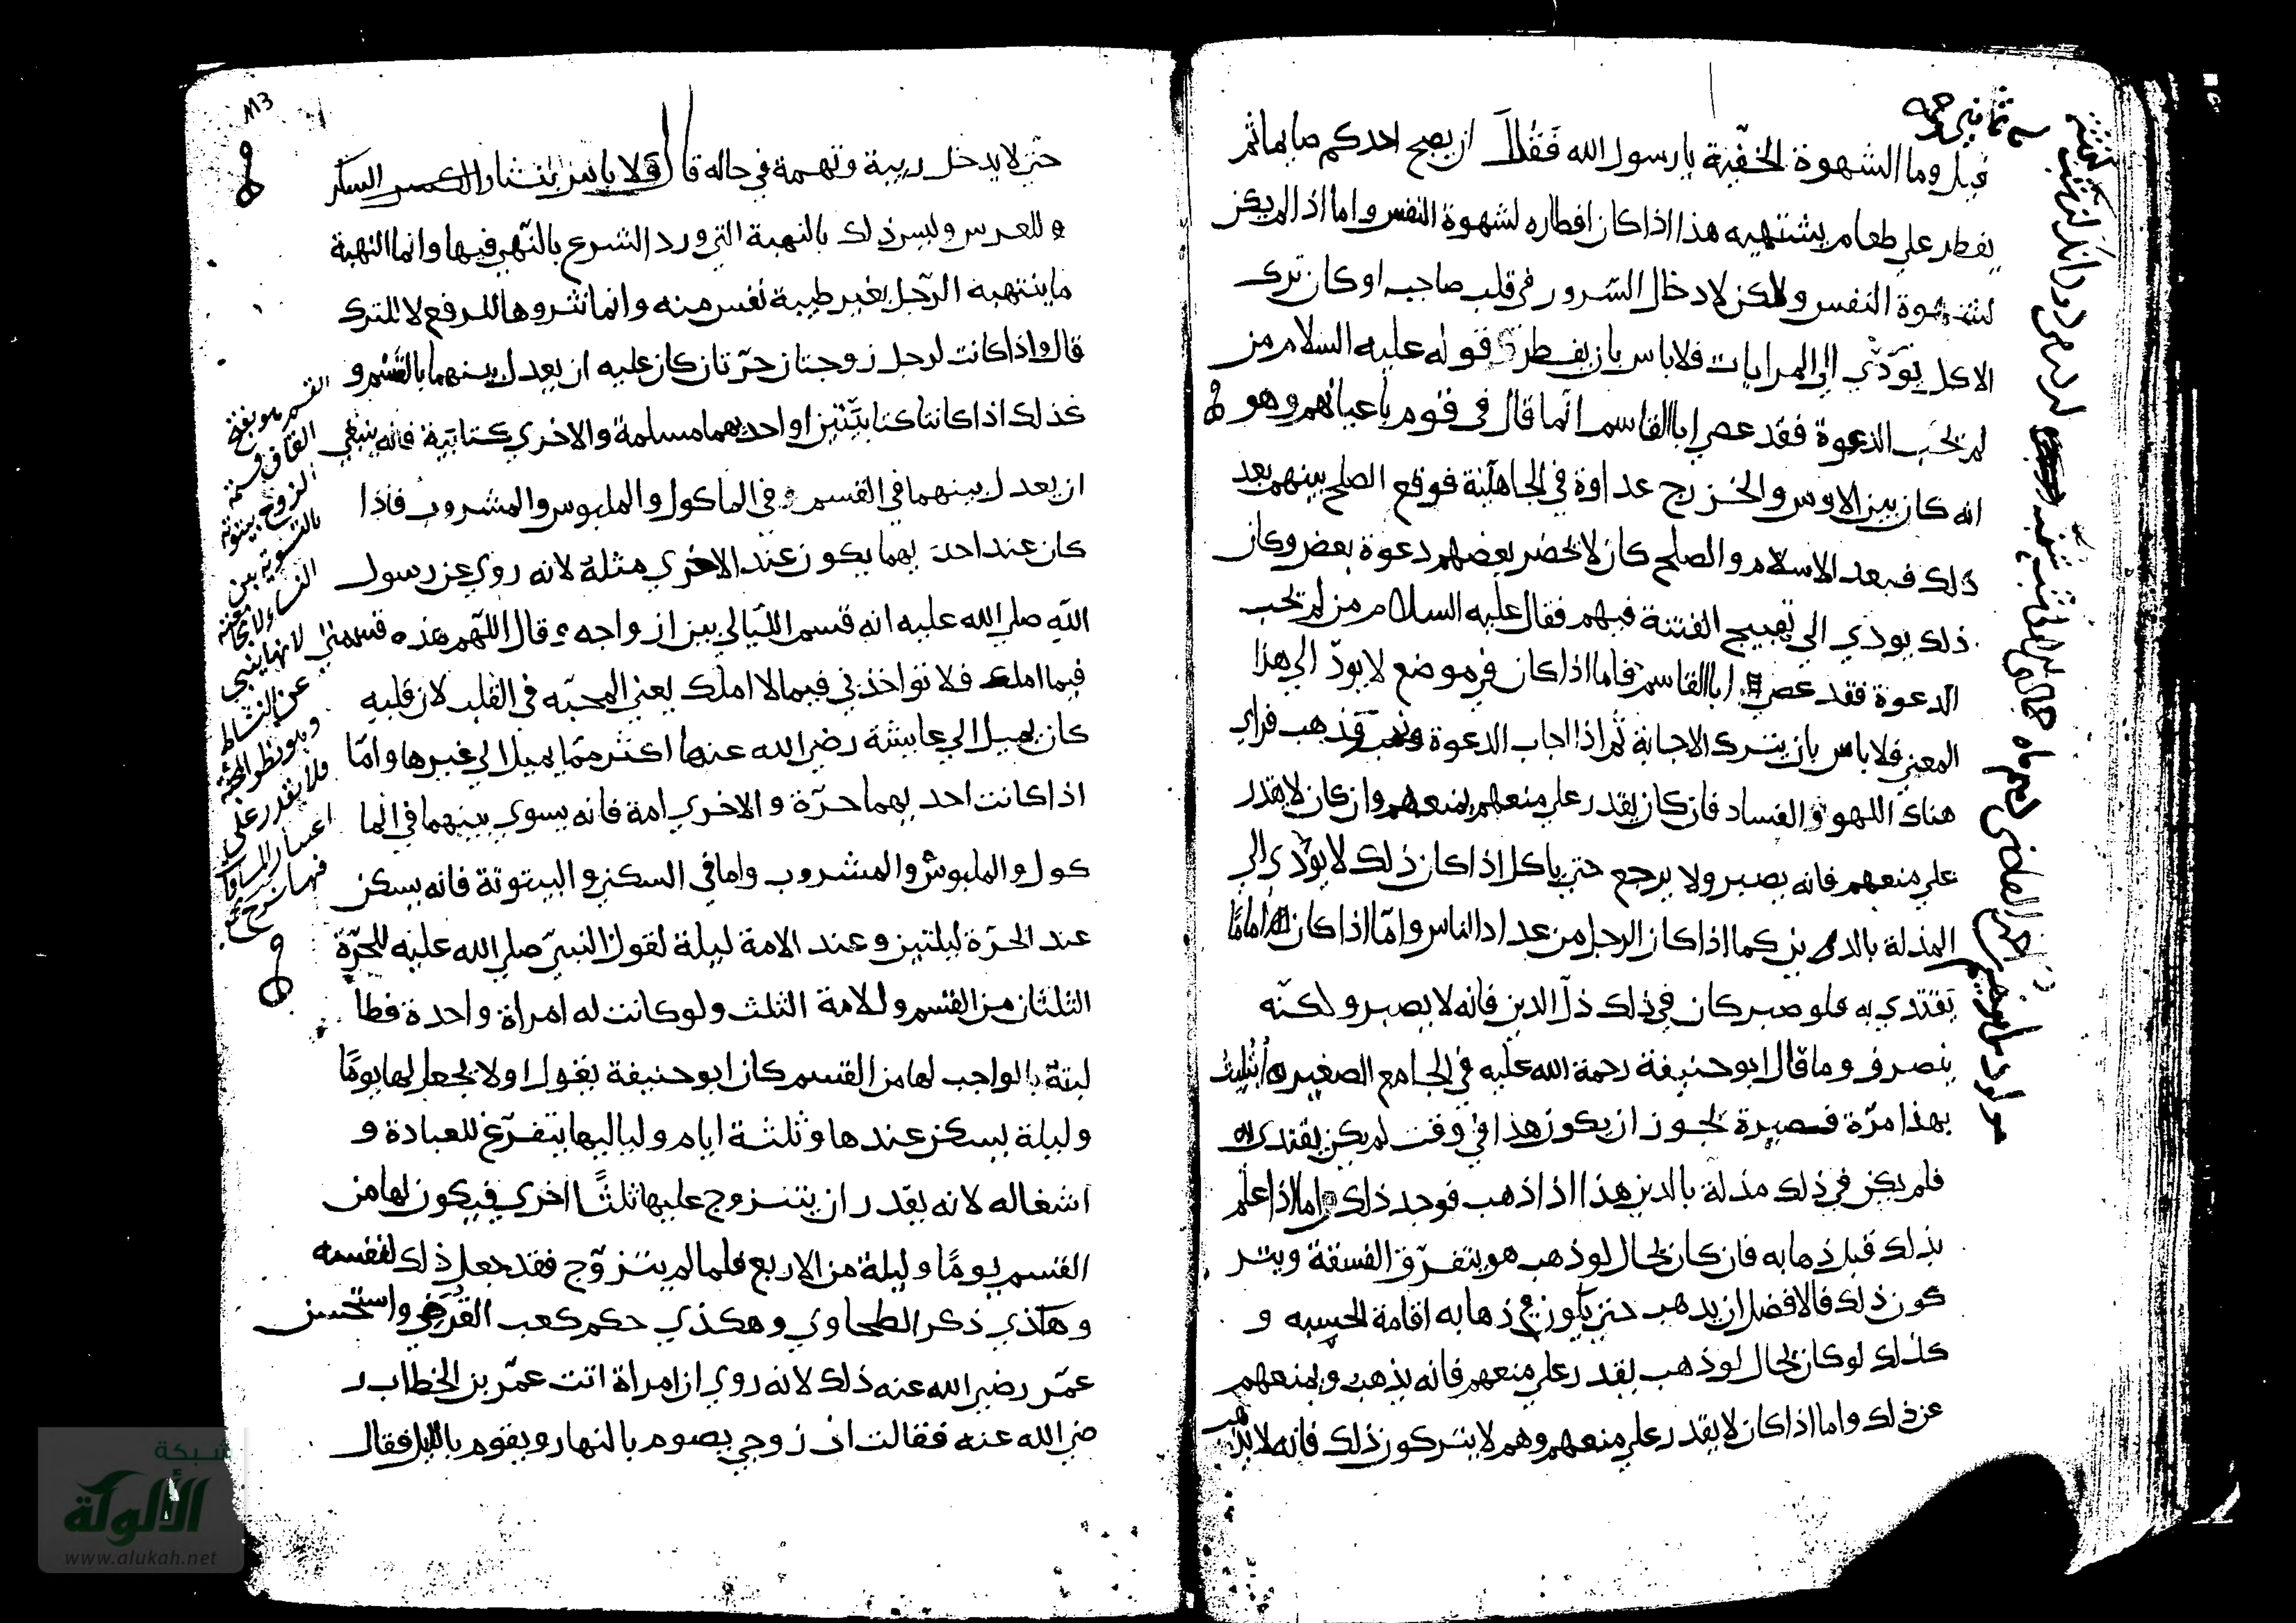 قيل وما الشهوة الخفية يا رسول الله فقال ان يصبح احدكم صايما ثم
يفطر علي طعام يشتهيه هذا اذا كان افطاره لشهوة النفس واما اذا لم يكن
لشهوة النفس ولكن لادخال السرور في قلب صاحبه او كان ترك
الاكل يؤدي الي المرايات فلا باس بان يفطر قوله عليه السلام من
لم يجب الدعوة فقد عصي ابا القاسم انما قال في قوم باعيانهم وهو
انه كان بين الاوس والخزرج عداوة في الجاهلية فوقع الصلح بينهم بعد
ذلك فبعد الاسلام والصلح كان لا يحضر بعضهم دعوة بعض وكان
ذلك يودي الي تهييج الفتنة فيهم فقال عليه السلام من لم يجب
الدعوة فقد عصي ابا القاسم فاما اذا كان في موضع لا يودي الي هذا
المعني فلا باس بان يترك الاجابة ثم اذا اجاب الدعوة وذهب فراي
هناك اللهو والفساد فان كان يقدر علي منعهم يمنعهم وان كان لا يقدر
علي منعهم فانه يصبر ولا يرجع حتي ياكل اذا كان ذلك لا يؤدي الي
المذلة بالدين كما اذا كان الرجل من عداد الناس واما اذا كان اماما
يقتدي به فلو صبر كان في ذلك ذل الدين فانه لا يصبر ولكنه
ينصرف وما قال ابو حنيفة رحمة الله عليه في الجامع الصغير ابتليت
بهذا مرة فصبرة يجوز ان يكون هذا في وقت لم يكن يقتدي به
فلم يكن في ذلك مذلة بالدين هذا اذا ذهب فوجد ذلك واما اذا علم
بذلك قبل ذهابه فان كان بحال لو ذهب هو يتفرق الفسقة ويتر
كون ذلك فالافضل ان يذهب حتي يكون في ذهابه اقامة الحسبه و
كذلك لو كان بحال لو ذهب يقدر علي منعهم فانه يذهب ويمنعهم
عن ذلك واما اذا كان لا يقدر علي منعهم وهم لا يتركون ذلك فانه لا يذهب
١١٣
حتي لا يدخل ريبة وتهمة في حاله قال ولا باس بنثار السكر
وللعرس وليس ذلك بالنهبة التي ورد الشرع بالنهي فيها وانما النهبة
ما ينتهبه الرجل بغير طيبة نفس منه وانما نثروها للرفع لا للترك
قال واذا كانت لرجل زوجتان حرتان كان عليه ان يعدل بينهما بالقسم و
كذلك اذا كانتا كتابيتين او احديهما مسلمة والاخري كتابية فانه ينبغي
ان يعدل بينهما في القسم وفي الماكول والملبوس والمشروب فاذا
كان عند احديهما يكون عند الاخري مثلة لانه روي عن رسول
الله صلي الله عليه انه قسم الليالي بين ازواجه وقال اللهم هذه قسمتي
فيما املك فلا تواخذني فيما لا املك يعني المحبه في القلب لان قلبه
كان يميل الي عايشة رضي الله عنها اكثر مما يميل الي غيرها واما
اذا كانت احديهما حرة والاخري امة فانه يسوي بينهما في الما
كول والملبوس والمشروب واما في السكني والبيتوتة فانه يسكن
عند الحرة ليلتين وعند الامة ليلة لقول النبي صلي الله عليه للحرة
الثلثان من القسم وللامة الثلث ولو كانت له امراة واحدة فطا
لبته بالواجب لها من القسم كان ابو حنيفة يقول اولا يجعل لها يوما
وليلة يسكن عندها وثلثة ايام ولياليها يتفرغ للعبادة و
اشغاله لانه يقدر ان يتزوج عليها ثلثا اخري فيكون لها من
القسم يوما وليلة من الاربع فلما لم يتزوج فقد جعل ذلك لنفسه
وهكذي ذكر الطحاوي وهكذي حكم كعب القرضي واستحسن
عمر رضي الله عنه ذلك لانه روي ان امراة اتت عمر بن الخطاب ر
ضي الله عنه فقالت ان زوجي يصوم بالنهار ويقوم بالليل فقال
القسم هو بفتح
القاف قسمة
الزوج بيتوتة
بالتسوية بين
النساء لا في مجامعته
لانها يبتني
عن النشاط
فلا يقدر علي
اعتبار المساواة
فيها شرح
شبكة
الألوكة
www.alukah.net